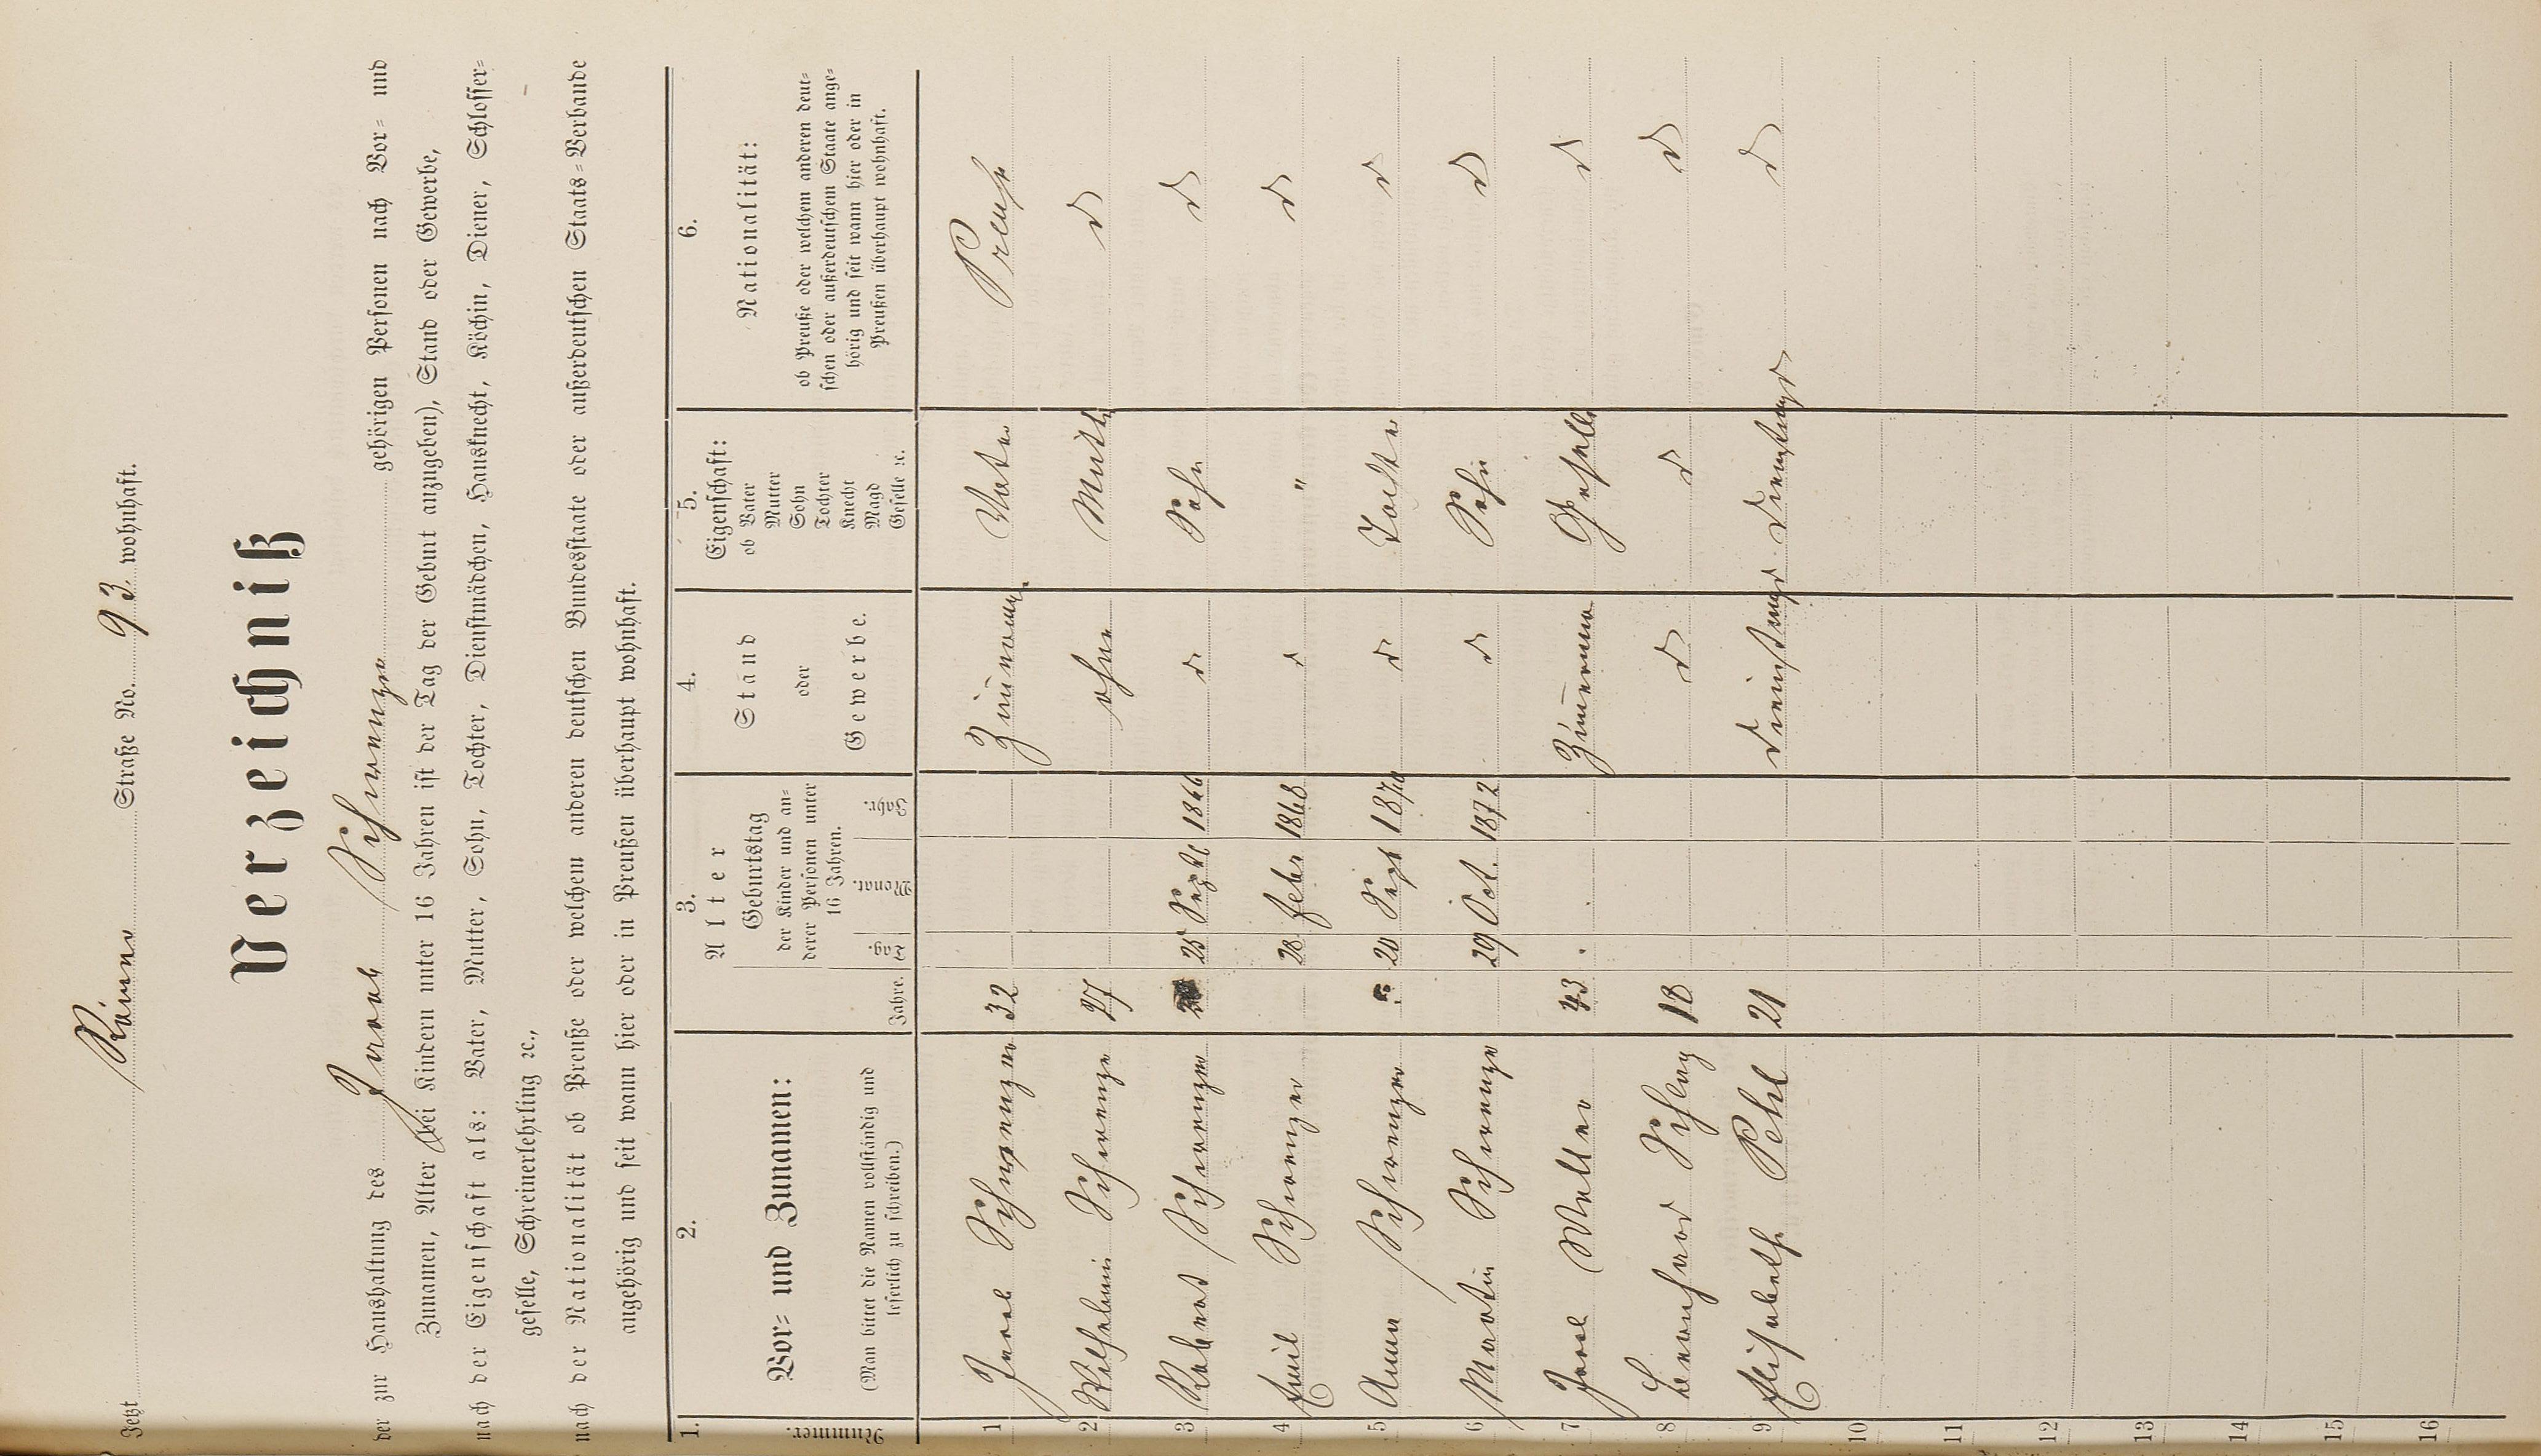 Jetzt Römer Straße No. 93. wohnhaft.
Verzeichniß
der zur Haushaltung des Jacob Schwenzer gehörigen Personen nach Vor- und
Zunamen, Alter (bei Kindern unter 16 Jahren ist der Tag der Geburt anzugeben), Stand oder Gewerbe,
nach der Eigenschaft als: Vater, Mutter, Sohn, Tochter, Dienstmädchen, Hausknecht, Köchin, Diener, Schlosser-
geselle, Schreinerlehrling ꝛc.,
nach der Nationalität ob Preuße oder welchem anderen deutschen Bundesstaate oder außerdeutschen Staats-Verbande
angehörig und seit wann hier oder in Preußen überhaupt wohnhaft.
1. 2. 3. 4. 5. 6.
Nummer.
Vor- und Zunamen:
(Man bittet die Namen vollständig und
leserlich zu schreiben.)
Alter
Jahre.
Geburtstag
der Kinder und an-
derer Personen unter
16 Jahren.
Tag. Monat. Jahr.
Stand
oder
Gewerbe.
Eigenschaft:
ob Vater
Mutter
Sohn
Tochter
Knecht
Magd
Geselle ꝛc.
Nationalität:
ob Preuße oder welchem anderen deut-
schen oder außerdeutschem Staate ange-
hörig und seit wann hier oder in
Preußen überhaupt wohnhaft.
1 Jacob Schwenzer 32 Vater Preuße
2 Schwenzer 27 ohne Mutter d
3 Robert Schwenzer 25 Sept 1866 d Sohn d
4 Emil Schwenzer 28 Febr 1868 d " d
5 Anna Schwenzer 20 Sept 1870 d Tochter d
6 Martin Schwenzer 29 Oct. 1872 d Sohn d
7 Jacob 43 Geselle d
8 18 d d d
9 Elisabeth 21 d
10
11
12
13
14
15
16